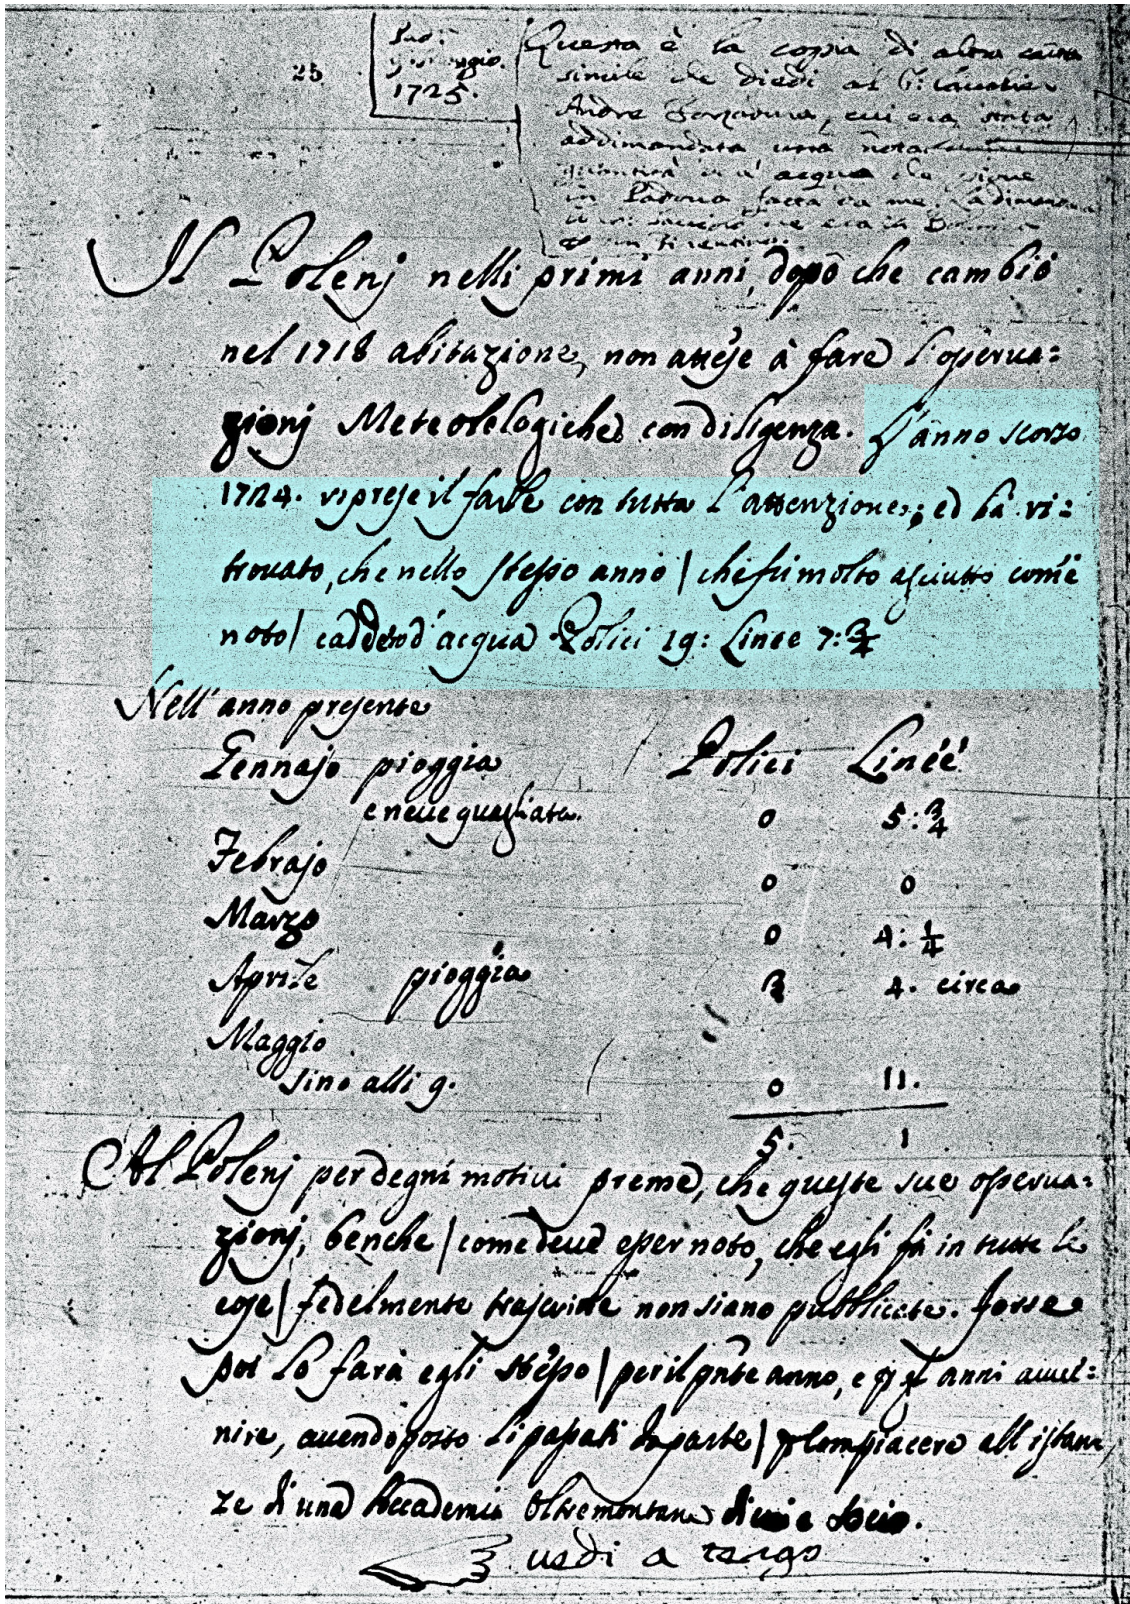 25
Pad:
9 Maggio.
1725.
Questa è la copia di altra carta
simile che diedi al S: Cavalier
Andre , cui era stata
addimandata una nota
quantità d'acqua che piove
in Padova fatta da me. La dimanda
che era in

Il Polenj nelli primi anni, dopò che cambiò
nel 1718 abitazione, non attese à fare l'osserua=
zionj Meteorologiche con diligenza. L'anno scorso
1724. riprese il farle con tutta l'attenzione; ed hà ri=
trouato, che nello stesso anno | che fù molto asciutto com'è
noto | cadde d'acqua Polici 19: Linee 7: 3/4
Nell'anno presente
Gennajo pioggia Polici Lineé
e neue guagliata. 0 5: 3/4
Febrajo 0 0
Marzo 0 4: 1/4
Aprile pioggia 3 4. circa
Maggio
sino alli 9. 0 11.
5. 1
Al Polenj per degni motiui preme, che queste sue osserua=
zionj, benche | come deue esser noto, che egli fà in tutte le
cose | fedelmente trascritte non siano pubblicate. Forse
poi lo farà egli stesso | per il pnte anno, e anni auue=
nire, auendo posto li passati da parte | compiacere all'istan
ze di una Accademia Oltremontana di cui è socio.
uedi a tergo